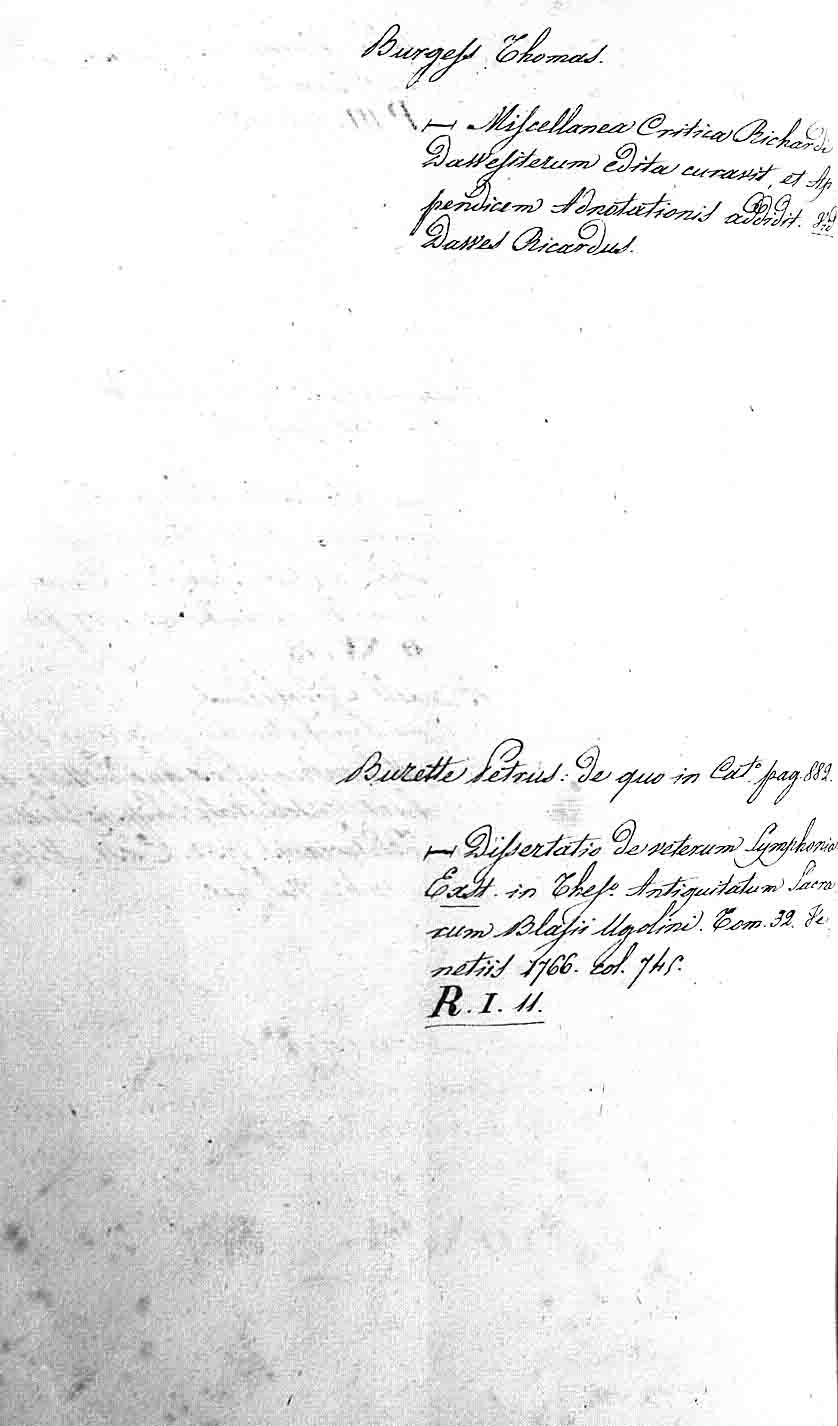 Burgeſs Thomas.
— Miſcellanea Critica Richardi
Dawesiterum edita curavit, et Ap
pendicem Adnotationis addidit. Vid
Dawes Ricardus.
Burette Petrus: de quo in Cat.° pag. 882.
— Diſsertatio de veterum Symphonia
Exst. in Theſ.° Antiquitatum Sacra
rum Blaſii Ugolini. Tom. 32. Ve
netiis 1766. col. 745.
R. I. 11.